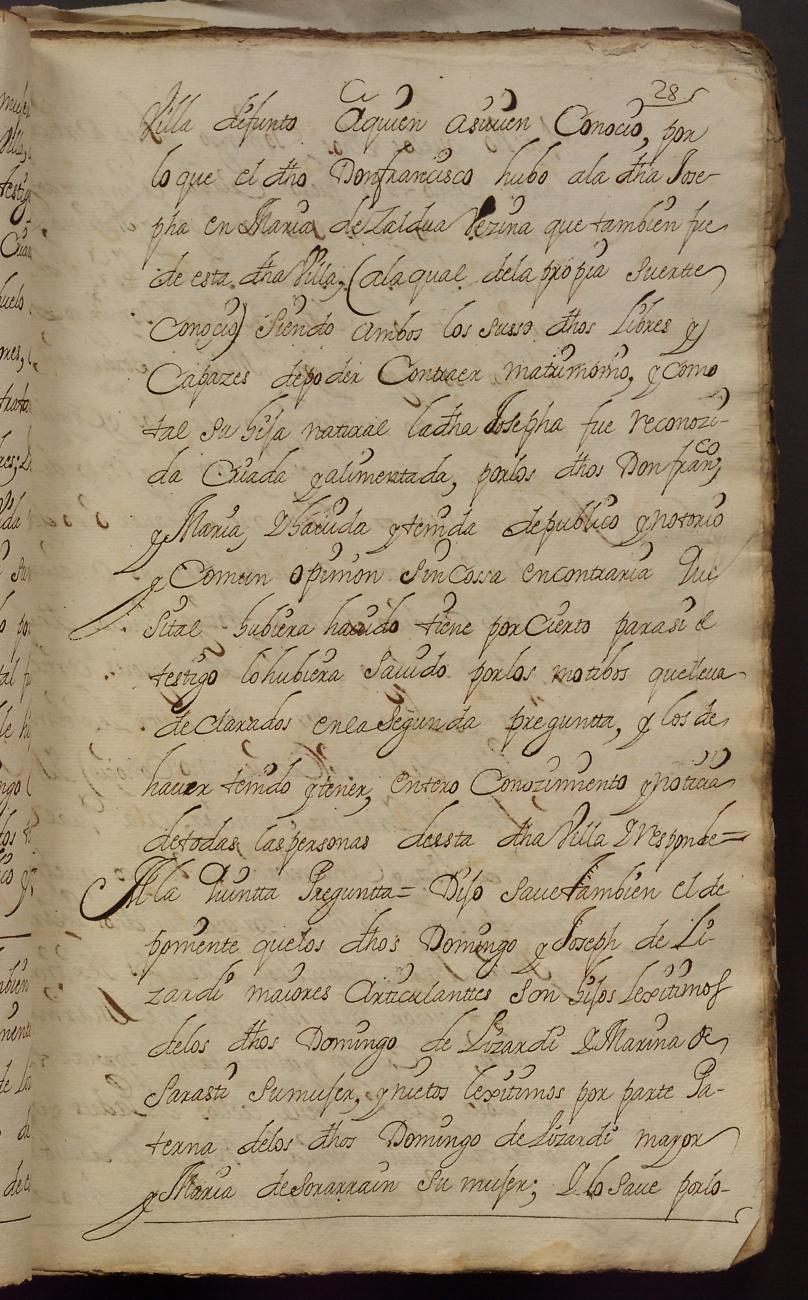 28
Villa difunto Aquien asiuien Conocio, por
lo que el dho Donfrancisco hubo ala dha Jose-
pha en Maria de Zaldua Vezina que tambien fue
de esta dha Villa, (ala qual dela propia suerte
Conocio) Siendo ambos los susso dhos Libres y
Capazes depoder Contraer matrimonio, y como
tal su hija natural ladha Josepha fue reconozi-
da Criada y alimentada, porlos dhos Don fran.co
y Maria, Y hauida y tenida depublico y notorio
y Comun opinion sin Cossa encontrario Que
sital hubiera hauido tiene por Cierto parasi el
testigo lo hubiera Sauido porlos motibos quelleua
declarados enla Segunda preguntta, y los de
hauer tenido y tener, entero Conozimiento y noticia
de todas las personas dessta dha Villa Y responde=
A la Quintta Preguntta= Dijo saue tambien el de
ponente quelos dhos Domingo y Joseph de Li-
zardi maiores Articulanttes son hijos lexitimos
delos dhos Domingo de Lizardi Y Marina de
Sarasti Sumujer, y nietos lexitimos por parte Pa-
terna delos dhos Domingo de Lizardi mayor
y Maria de Sorarrain Su mujer; Y lo Saue porlo-